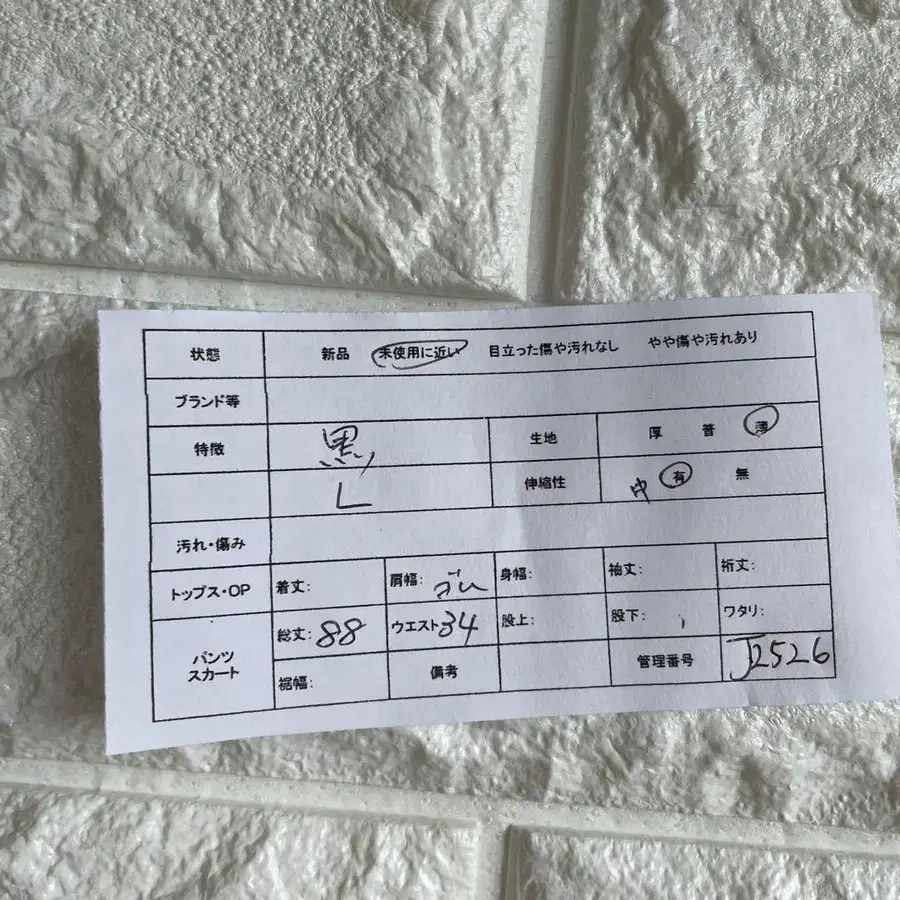 状態 新品 未使用に近い 目立った傷や汚れなし やや傷や汚れあり
ブランド等
特徴 黒 生地 厚 普 薄
L 伸縮性 中 有 無
汚れ・傷み
トップス・OP 着丈: 肩幅: ゴム 身幅: 袖丈: 裄丈:
パンツ スカート
総丈: 88 ウエスト 34 股上: 股下: ワタリ:
裾幅: 備考 管理番号 J2526